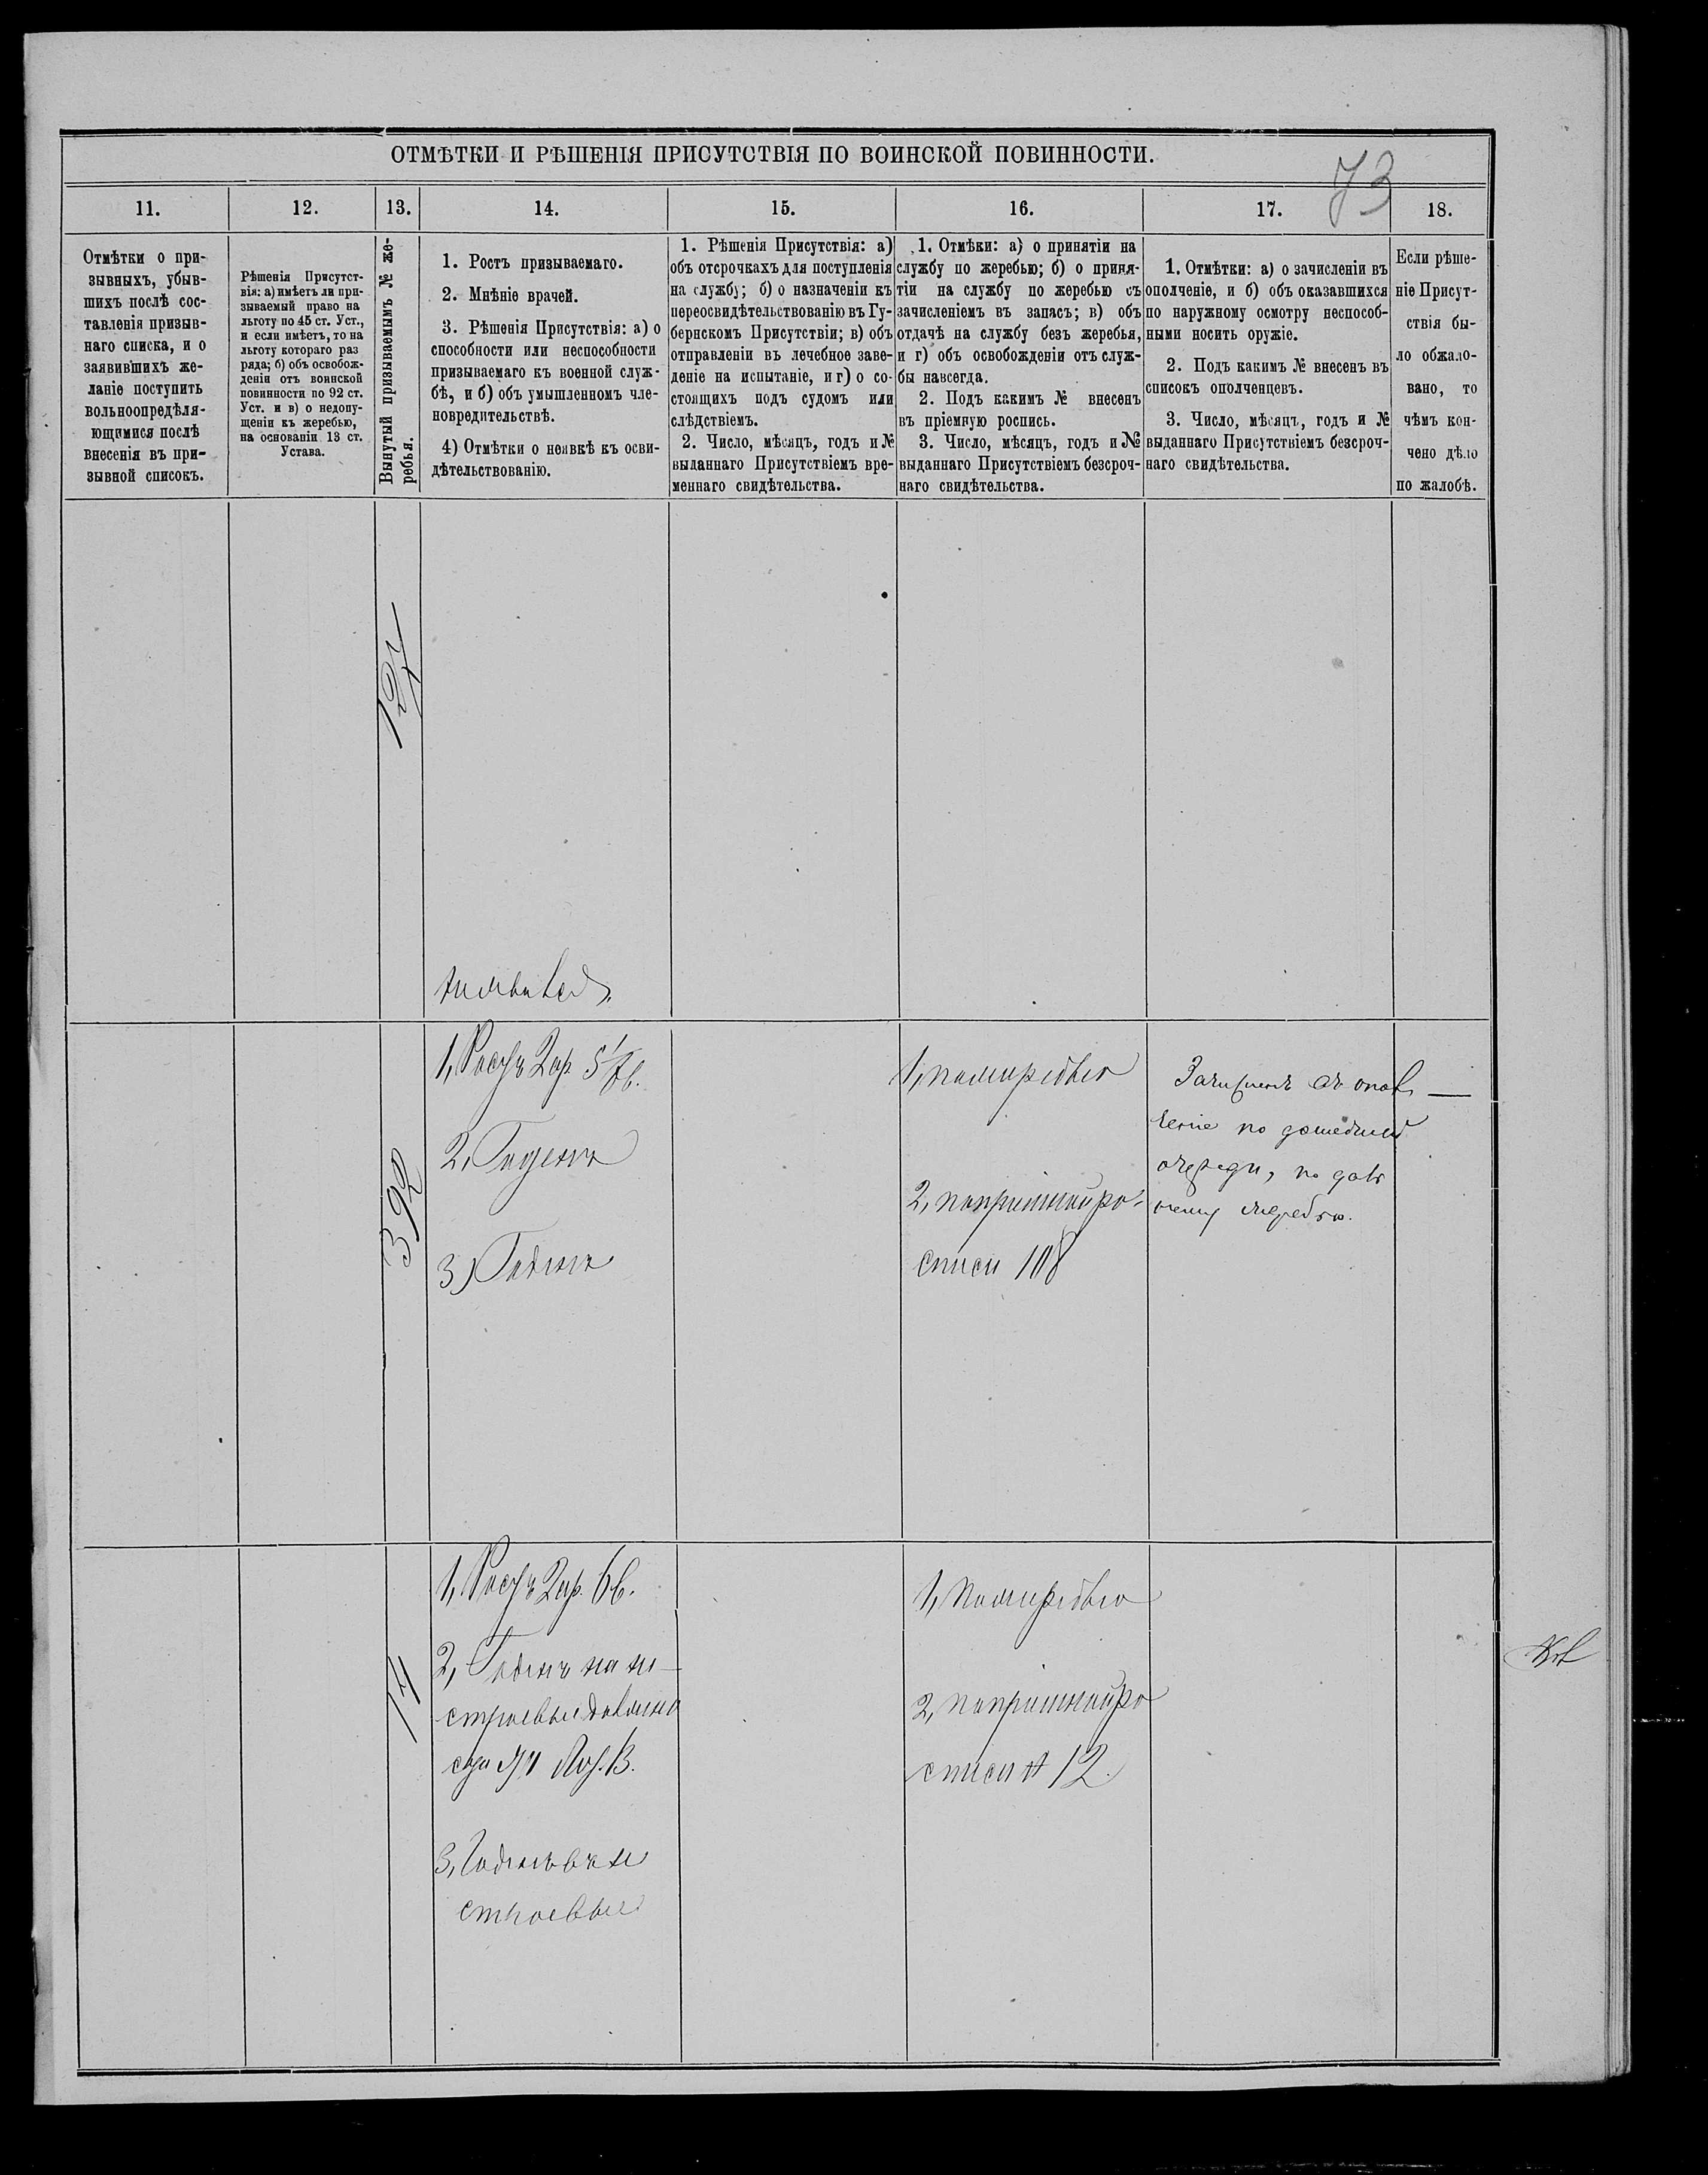 ОТМѢТКИ И РѢШЕНІЯ ПРИСУТСТВІЯ ПО ВОИНСКОЙ ПОВИННОСТИ.
73
11.
12.
13.
14.
15.
16.
17.
18.
Отмѣтки о при-
зывныхъ, убыв-
шихъ послѣ сос-
тавленія призыв-
наго списка, и о
заявившихъ же-
ланіе поступить
вольноопредѣля-
ющимися послѣ
внесенія въ при-
зывной списокъ.
Рѣшенія Присутст-
вія: а) имѣетъ ли при-
зываемый право на
льготу по 45 ст. Уст.,
и если имѣетъ, то на
льготу котораго раз
ряда; б) объ освобож-
деніи отъ воинской
повинности по 92 ст.
Уст. и в) о недопу-
щеніи къ жеребью,
на основаніи 13 ст.
Устава.
Вынутый призываемымъ № же-
ребья.
1. Ростъ призываемаго.
2. Мнѣніе врачей.
3. Рѣшенія Присутствія: а) о
способности или неспособности
призываемаго къ военной служ-
бѣ, и б) объ умышленномъ чле-
новредительствѣ.
4) Отмѣтки о неявкѣ къ осви-
дѣтельствованію.
1. Рѣшенія Присутствія: а)
объ отсрочкахъ для поступленія
на службу; б) о назначеніи къ
переосвидѣтельствованію въ Гу-
бернскомъ Присутствіи; в) объ
отправленіи въ лечебное заве-
деніе на испытаніе, и г) о со-
стоящихъ подъ судомъ или
слѣдствіемъ.
2. Число, мѣсяцъ, годъ и №
выданнаго Присутствіемъ вре-
меннаго свидѣтельства.
1. Отмѣки: а) о принятіи на
службу по жеребью; б) о приня-
тіи на службу по жеребью съ
зачисленіемъ въ запасъ; в) объ
отдачѣ на службу безъ жеребья,
и г) объ освобожденіи отъ служ-
бы навсегда.
2. Подъ какимъ № внесенъ
въ пріемную роспись.
3. Число, мѣсяцъ, годъ и №
выданнаго Присутствіемъ безсроч-
наго свидѣтельства.
1. Отмѣтки: а) о зачисленіи въ
ополченіе, и б) объ оказавшихся
по наружному осмотру неспособ-
ными носить оружіе.
2. Подъ какимъ № внесенъ въ
списокъ ополченцевъ.
3. Число, мѣсяцъ, годъ и №
выданнаго Присутствіемъ безсроч-
наго свидѣтельства.
Если рѣше-
ніе Присут-
ствія бы-
ло обжало-
вано, то
чѣмъ кон-
чено дѣло
по жалобѣ.
неявился
392
1, Ростъ 2 ар.
2, Годенъ
3) Годенъ
1, по жеребью
2, по пріемной ро-
списи 108
Зачисленъ въ опол
ченіе по
очереди, по
жеребью.
14
1, Ростъ 2 ар. 6 в.
2, Годенъ на не
строевые
3, Годенъ въ не
строевые
1, По жеребью
2, по пріемной ро
списи № 12.